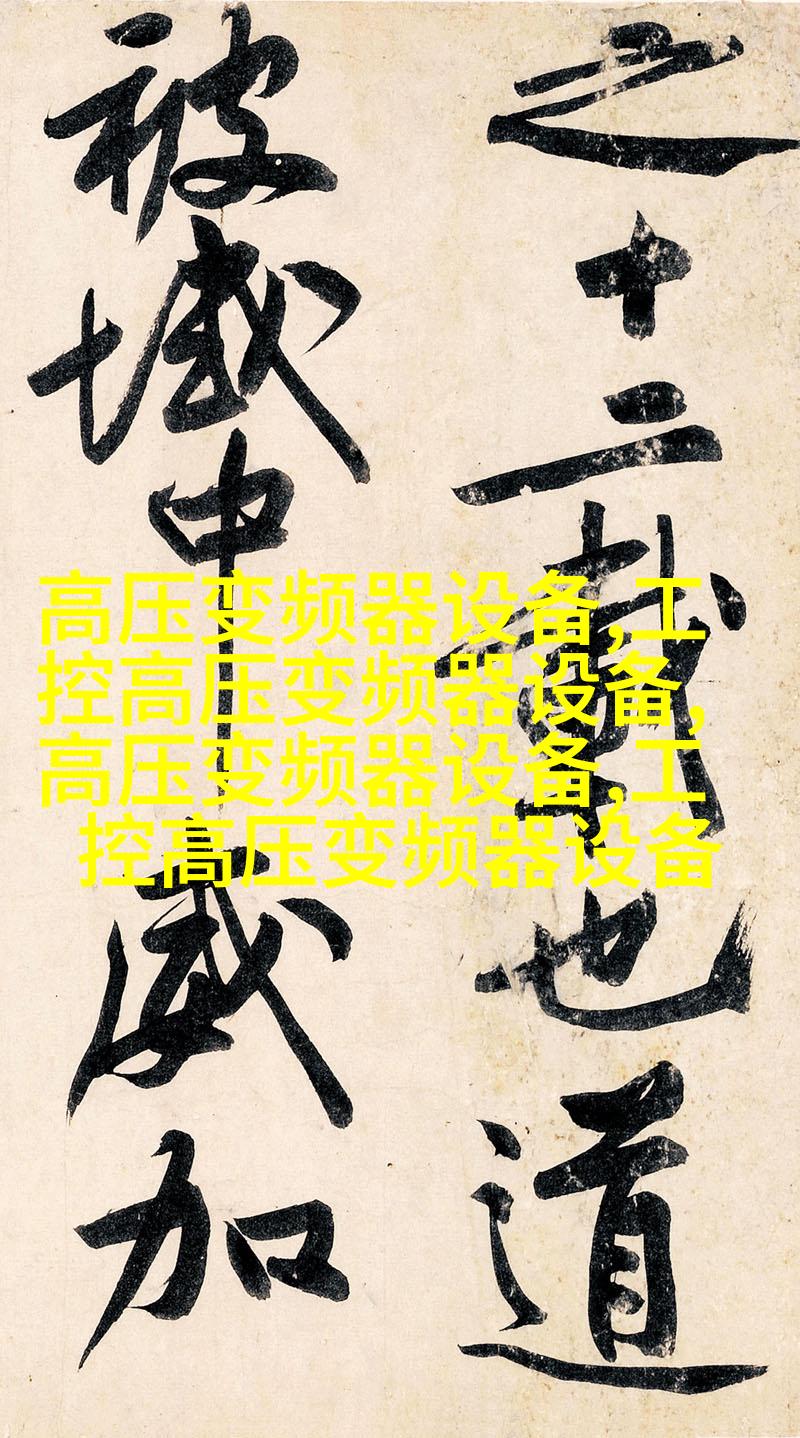 之十二载也道
被域中威加
高压变频器设备,工
控高压变频器设备,
高压变频器设备,工
控高压变频器设备